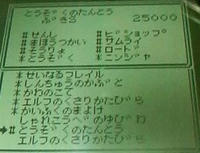 とうぞくのたんとう
ぶき 25000
*せんし *ビショップ
*まほうつかい *サムライ
*そうりょ *ロード
*とうぞく *ニンジャ
*せいなるフレイル
*しんちゅうのかぶと
*かわのこて
エルフのくさりかたびら
*かいふくのまよけ
*しゃれこうべのゆびわ
*とうぞくのたんとう
エルフのくさりかたびら